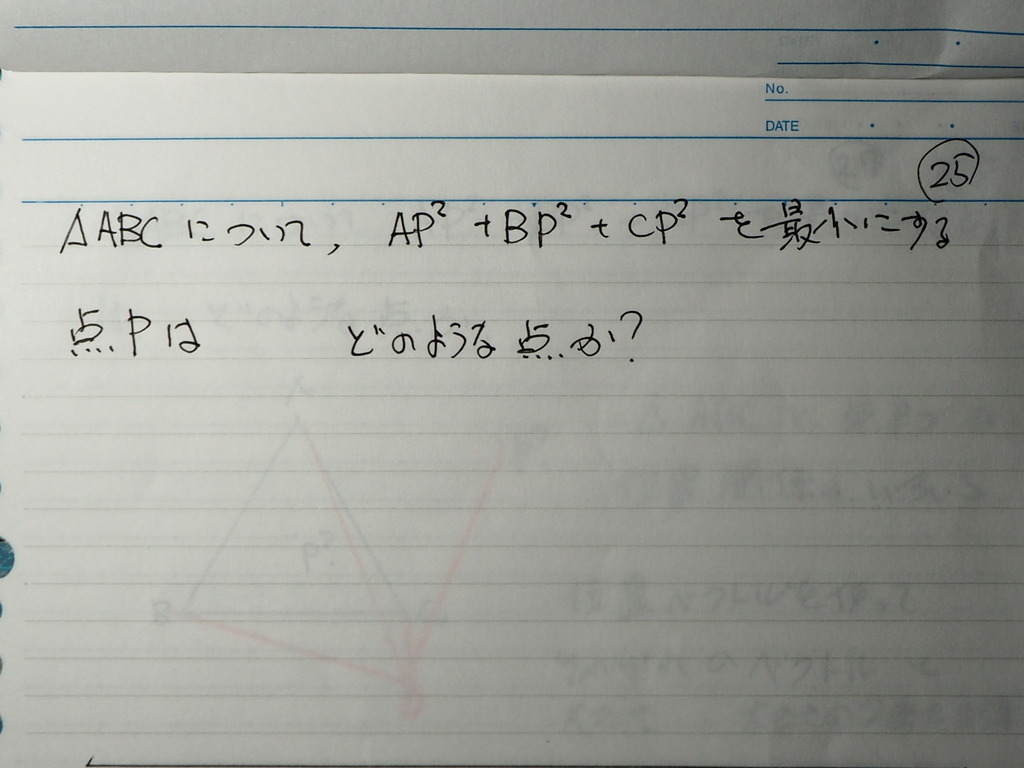 No.
DATE
25
△ABC について, AP² + BP² + CP² を最小にする
点Pは どのような点か?